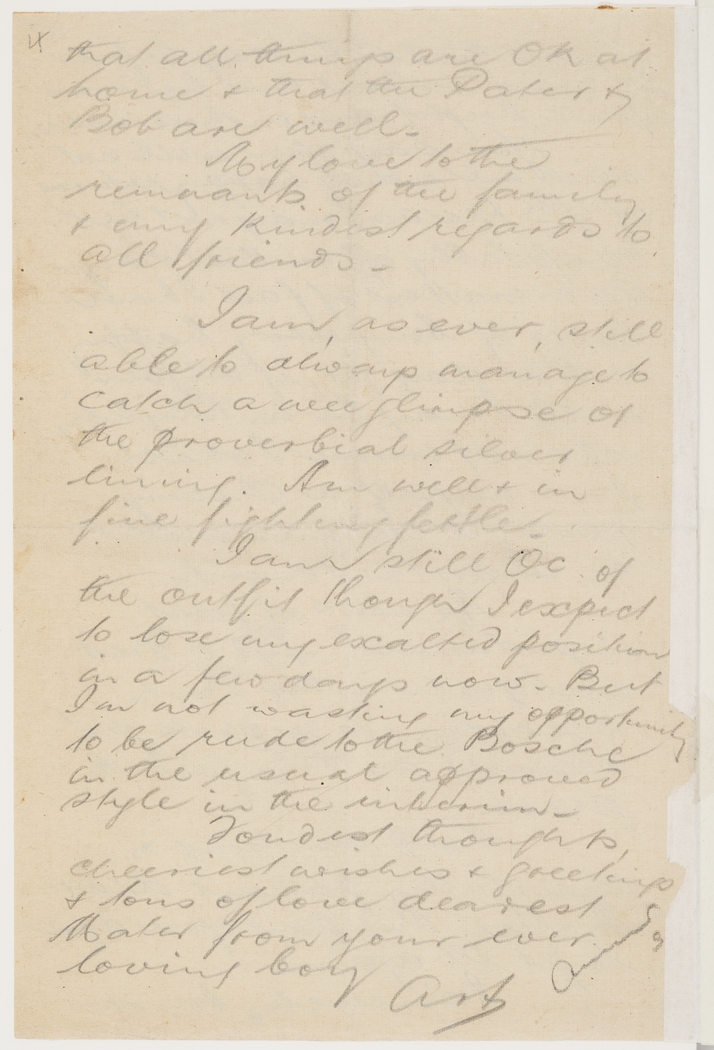 that all things are OK at
home & that the Pater &
Bob are well -
My love to the
remnants of the family
& my kindest regards to
all friends -
I am, as ever, still
able to always manage to
catch a wee glimpse of
the proverbial silver
lining. Am well & in
fine fighting fettle.
I am still Oc of
the outfit though I expect
to lose my exalted position
in a few days now - But
I'm not wasting my opportunity
to be rude to the Bosche
in the usual approved
style in the interim -
Fondest thoughts,
cheeriest wishes & greetings
& tons of love dearest
Mater from your ever
loving boy
Art